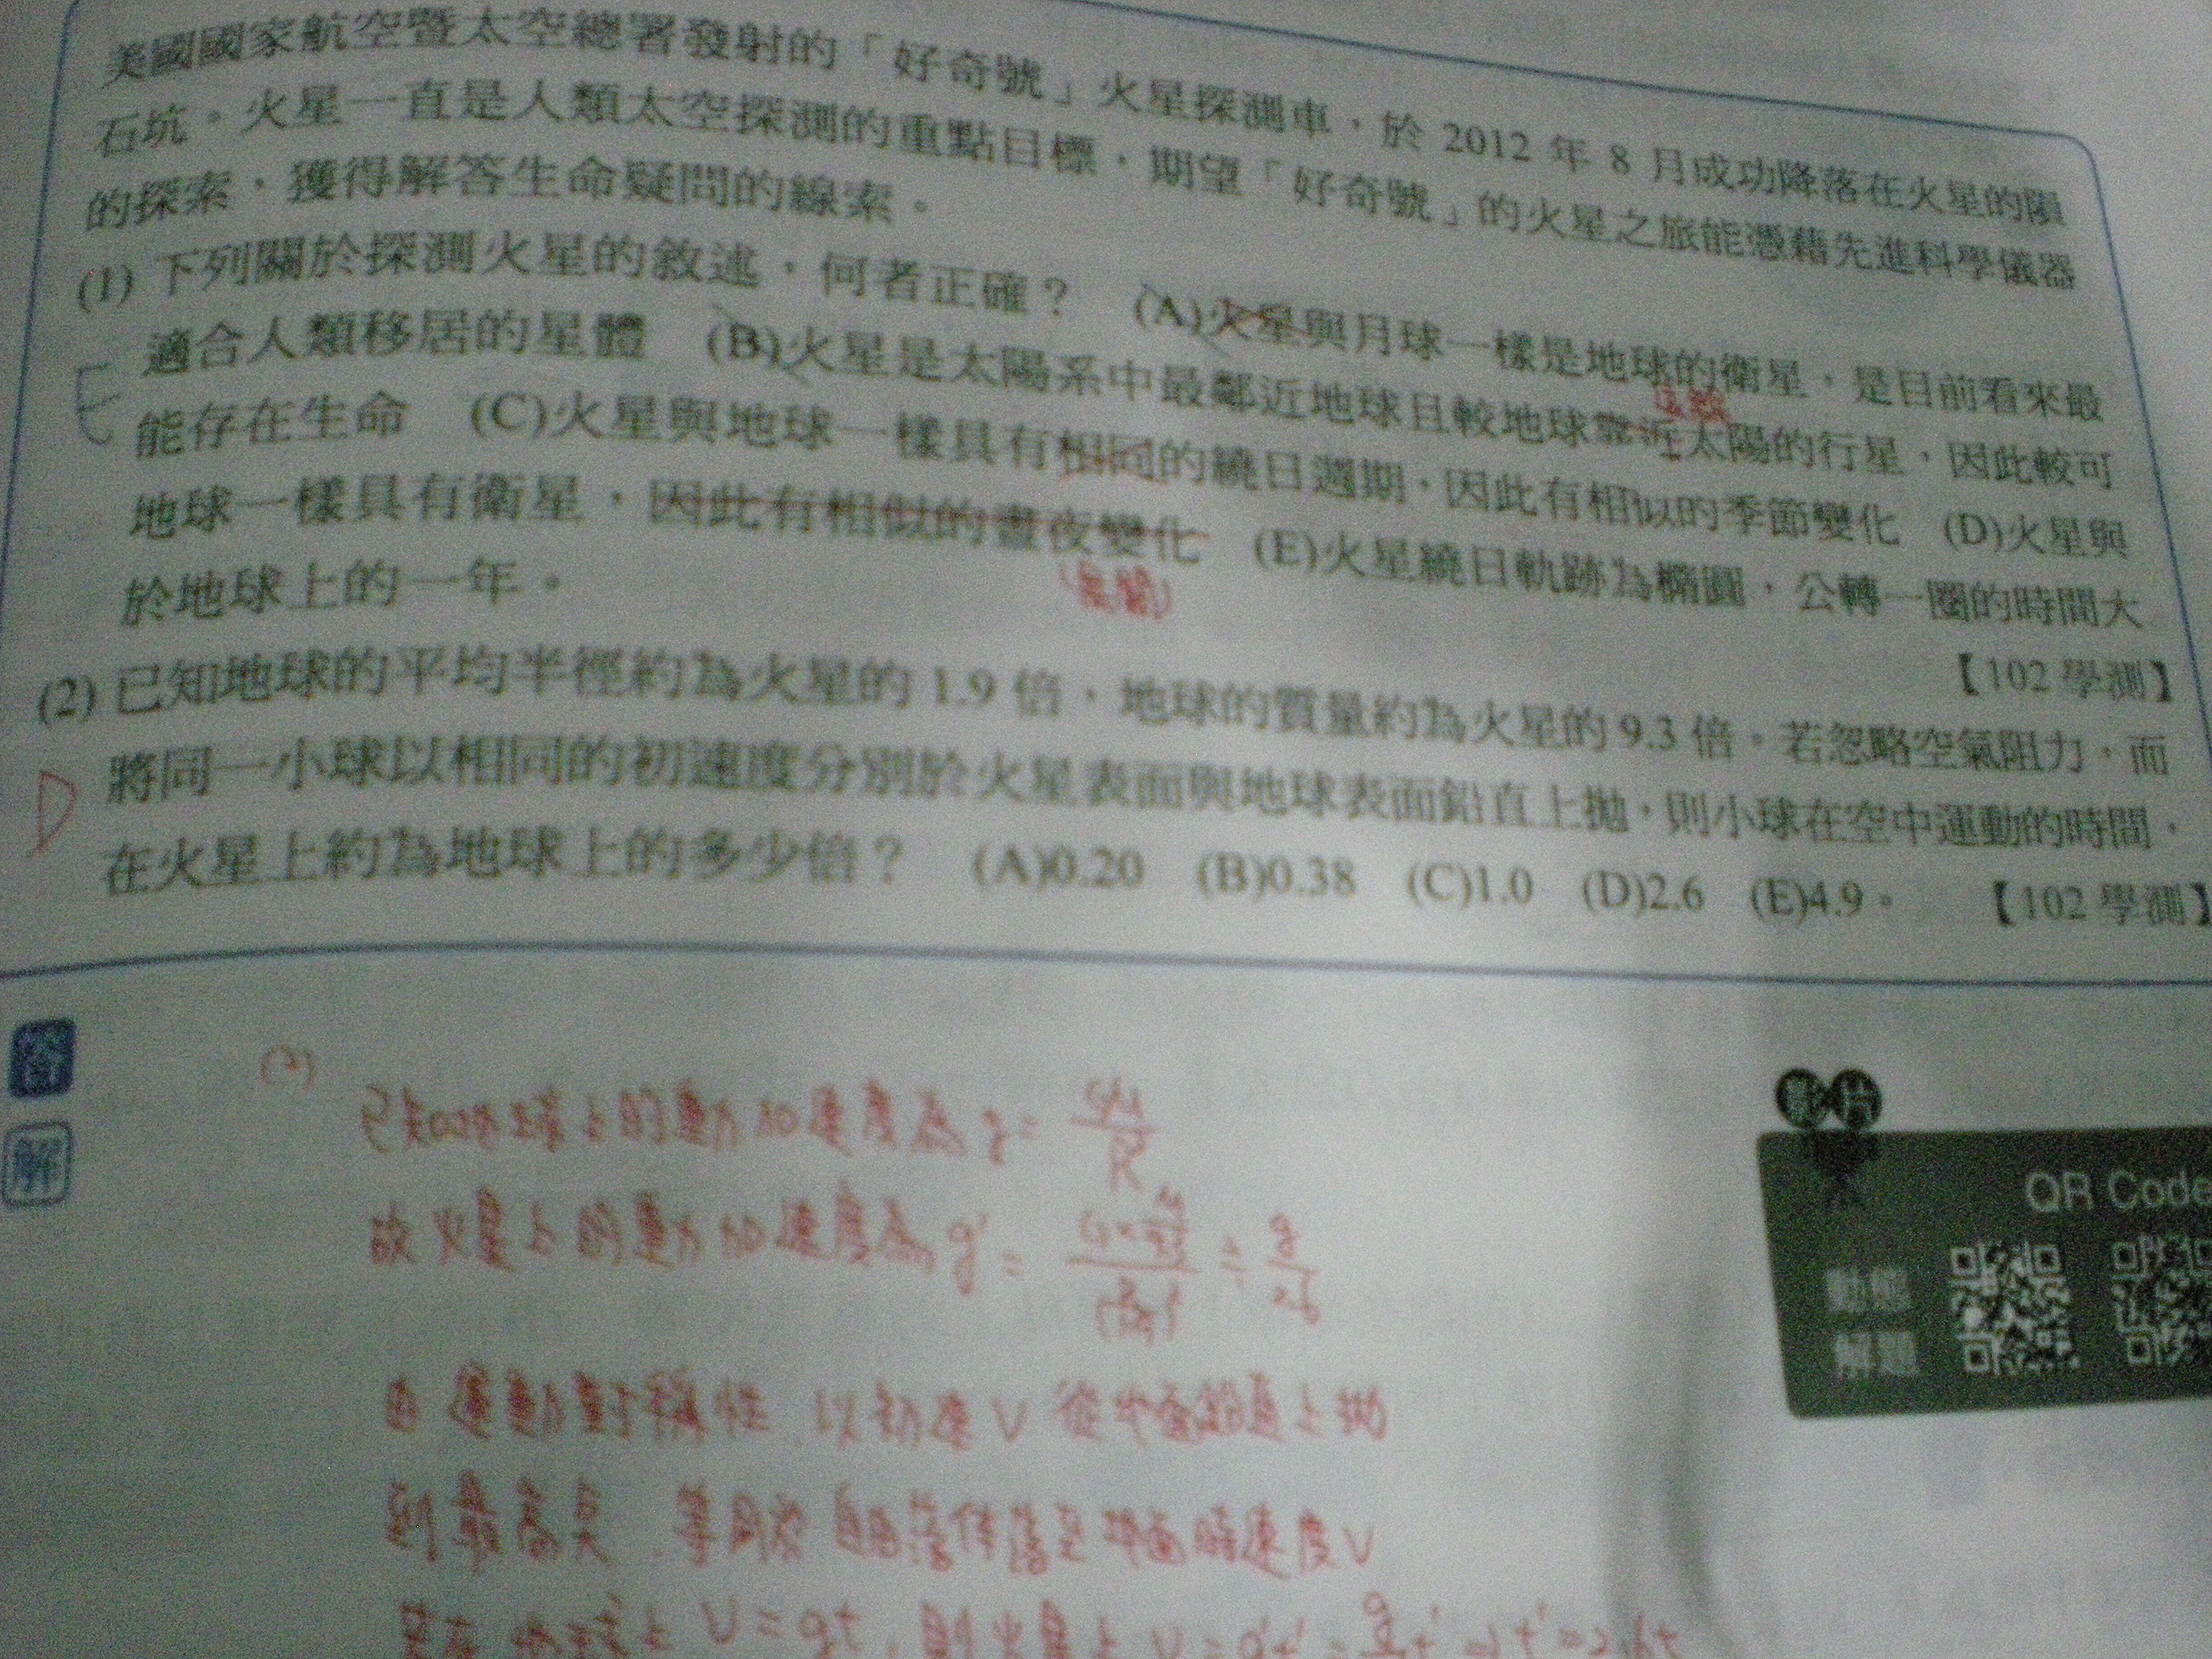 美國國家航空暨太空總署發射的「好奇號」火星探測車，於 2012 年 8 月成功降落在火星的隕
石坑。火星一直是人類太空探測的重點目標，期望「好奇號」的火星之旅能憑藉先進科學儀器
的探索，獲得解答生命疑問的線索。
(1) 下列關於探測火星的敘述，何者正確？ (A)火星與月球一樣是地球的衛星，是目前看來最
適合人類移居的星體 (B)火星是太陽系中最鄰近地球且較地球靠近太陽的行星，因此較可
能存在生命 (C)火星與地球一樣具有相同的繞日週期，因此有相似的季節變化 (D)火星與
地球一樣具有衛星，因此有相似的晝夜變化 (E)火星繞日軌跡為橢圓，公轉一圈的時間大
(無關)
於地球上的一年。
【102 學測】
E
(2) 已知地球的平均半徑約為火星的 1.9 倍，地球的質量約為火星的 9.3 倍。若忽略空氣阻力，而
將同一小球以相同的初速度分別於火星表面與地球表面鉛直上拋，則小球在空中運動的時間，
在火星上約為地球上的多少倍？ (A)0.20 (B)0.38 (C)1.0 (D)2.6 (E)4.9。 【102 學測】
D
答
解
(2)
已知地球上的重力加速度為 g =
故火星上的重力加速度為 g' =
由運動對稱性，以初速 V 從地面鉛直上拋
到最高點，等同於自由落體落至地面時速度 V
V = gt
影片
QR Code
動態
解題